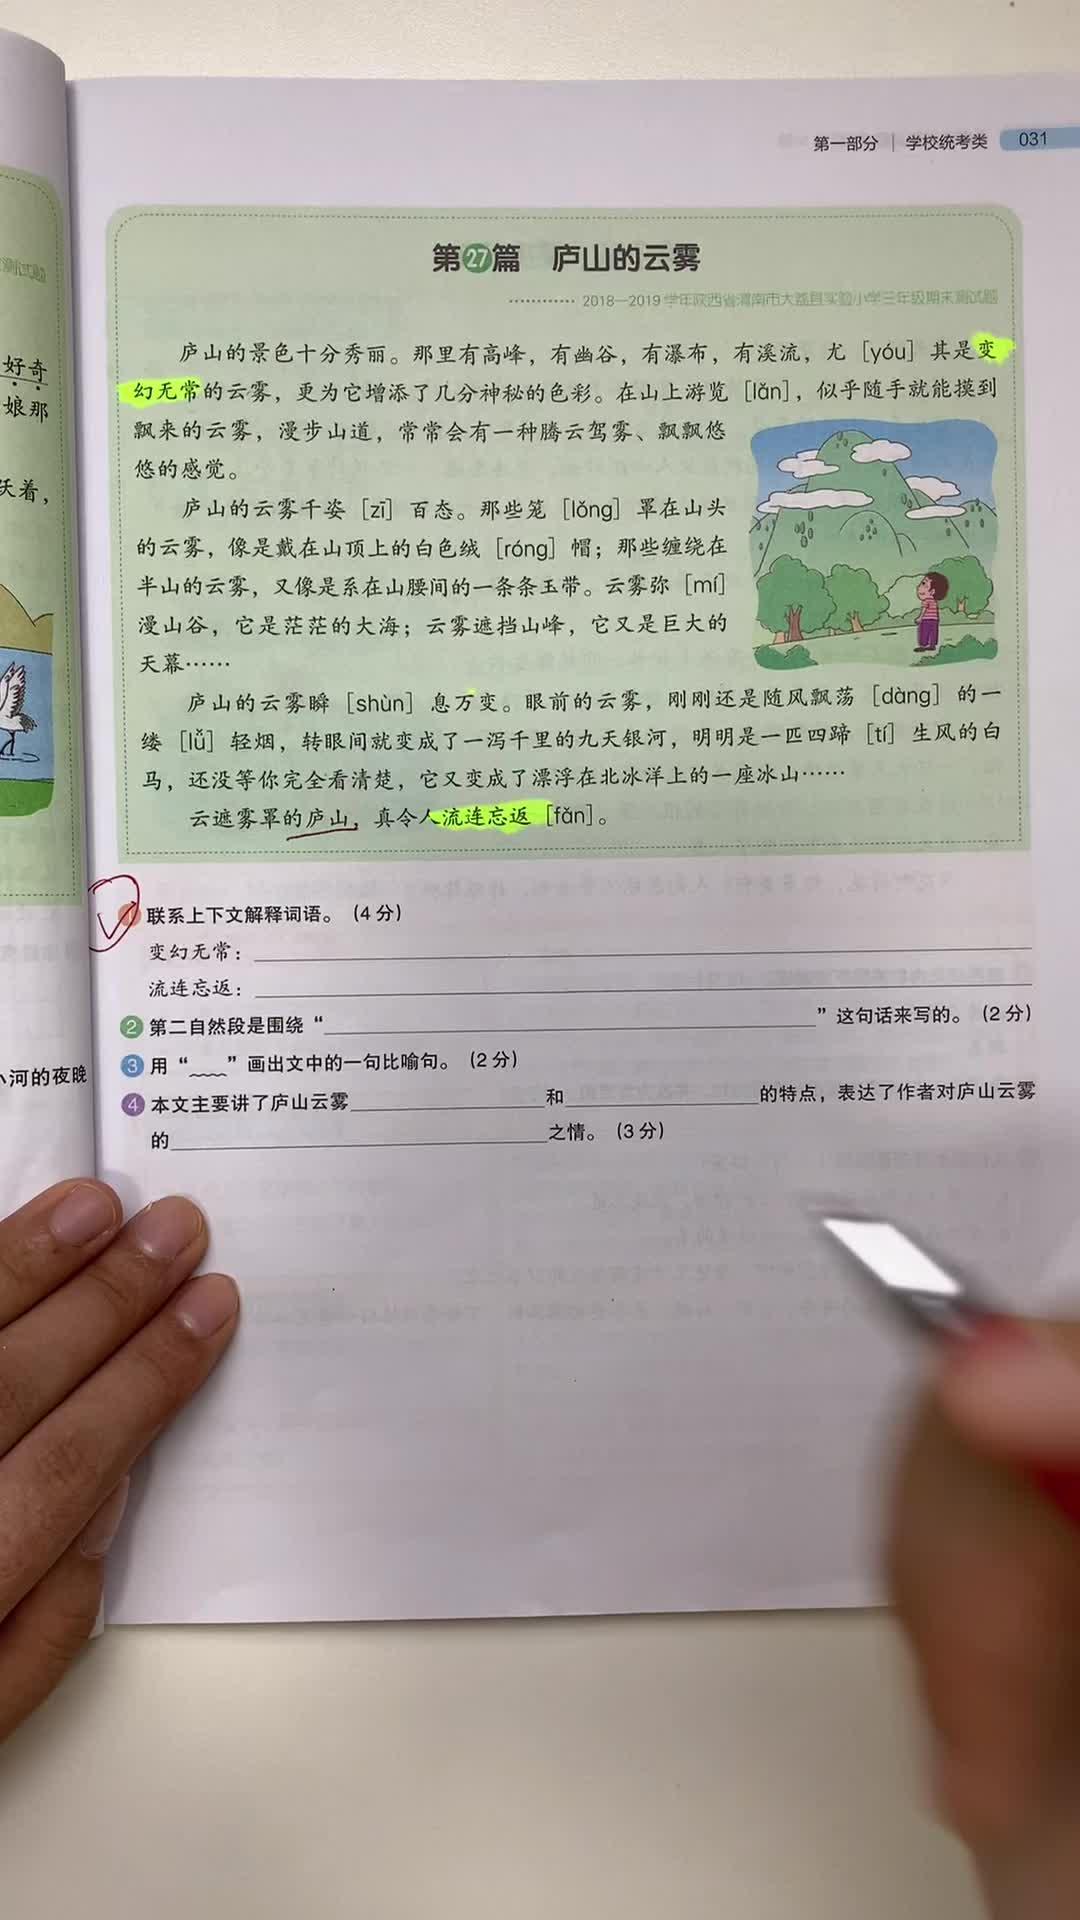 第一部分｜学校统考类 031
第27篇 庐山的云雾
············ 2018—2019学年陕西省渭南市大荔县实验小学三年级期末测试题
庐山的景色十分秀丽。那里有高峰，有幽谷，有瀑布，有溪流，尤［yóu］其是变
幻无常的云雾，更为它增添了几分神秘的色彩。在山上游览［lǎn］，似乎随手就能摸到
飘来的云雾，漫步山道，常常会有一种腾云驾雾、飘飘悠
悠的感觉。
庐山的云雾千姿［zī］百态。那些笼［lǒng］罩在山头
的云雾，像是戴在山顶上的白色绒［róng］帽；那些缠绕在
半山的云雾，又像是系在山腰间的一条条玉带。云雾弥［mí］
漫山谷，它是茫茫的大海；云雾遮挡山峰，它又是巨大的
天幕……
庐山的云雾瞬［shùn］息万变。眼前的云雾，刚刚还是随风飘荡［dàng］的一
缕［lǚ］轻烟，转眼间就变成了一泻千里的九天银河，明明是一匹四蹄［tí］生风的白
马，还没等你完全看清楚，它又变成了漂浮在北冰洋上的一座冰山……
云遮雾罩的庐山，真令人流连忘返［fǎn］。
1 联系上下文解释词语。（4分）
变幻无常：
流连忘返：
2 第二自然段是围绕“＿＿＿＿”这句话来写的。（2分）
3 用“﹏﹏”画出文中的一句比喻句。（2分）
4 本文主要讲了庐山云雾＿＿＿＿和＿＿＿＿的特点，表达了作者对庐山云雾
的＿＿＿＿之情。（3分）
好奇
娘那
跃着，
小河的夜晚